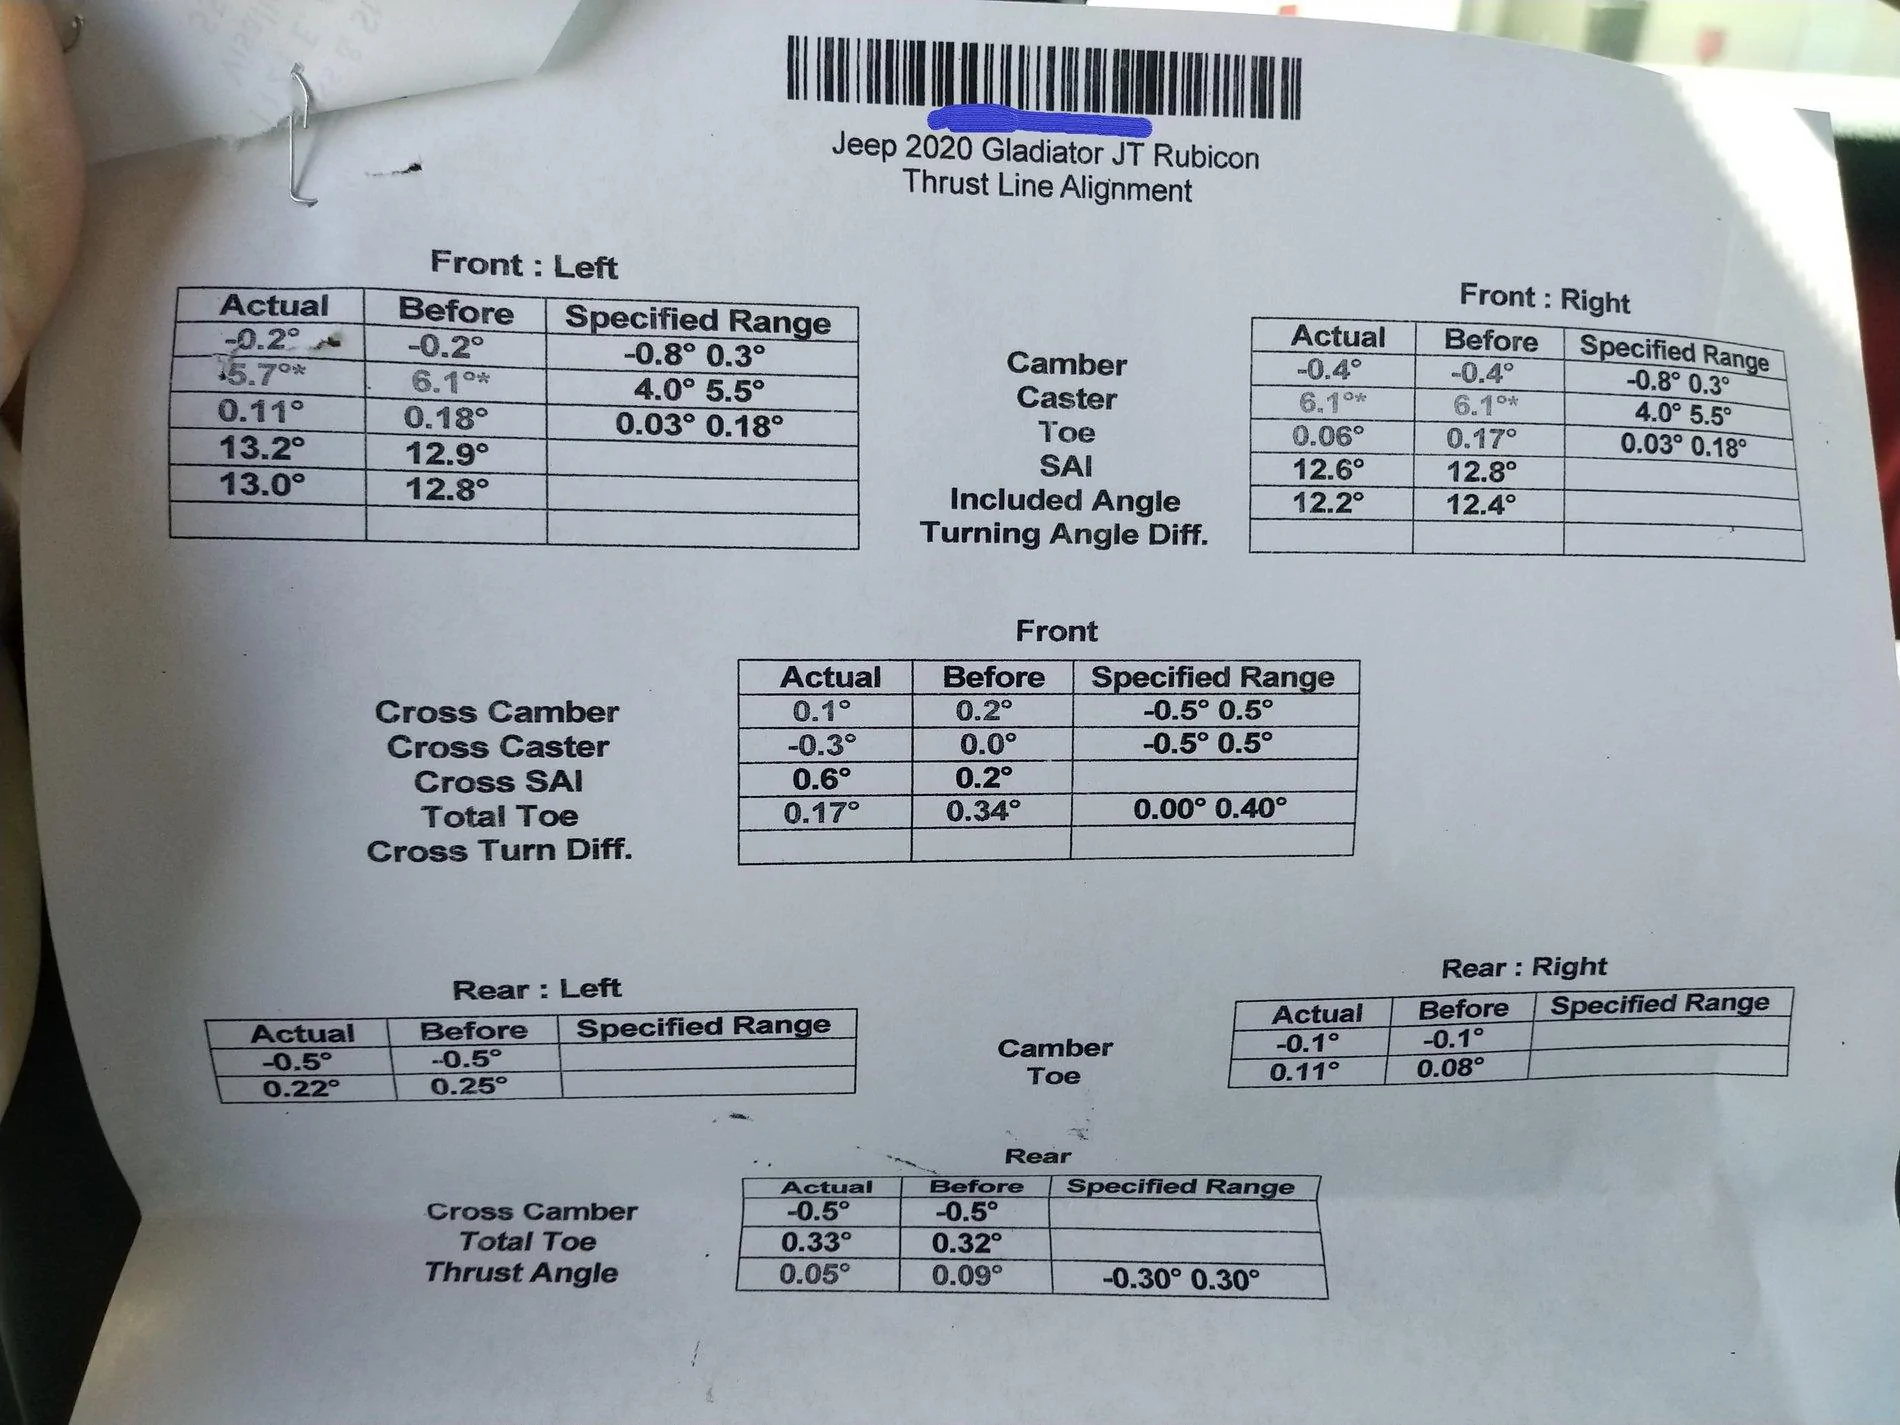 Jeep 2020 Gladiator JT Rubicon
Thrust Line Alignment
Front : Left
Actual Before Specified Range
-0.2° -0.2° -0.8° 0.3°
5.7°* 6.1°* 4.0° 5.5°
0.11° 0.18° 0.03° 0.18°
13.2° 12.9°
13.0° 12.8°
Camber
Caster
Toe
SAI
Included Angle
Turning Angle Diff.
Front : Right
Actual Before Specified Range
-0.4° -0.4° -0.8° 0.3°
6.1°* 6.1°* 4.0° 5.5°
0.06° 0.17° 0.03° 0.18°
12.6° 12.8°
12.2° 12.4°
Front
Actual Before Specified Range
Cross Camber 0.1° 0.2° -0.5° 0.5°
Cross Caster -0.3° 0.0° -0.5° 0.5°
Cross SAI 0.6° 0.2°
Total Toe 0.17° 0.34° 0.00° 0.40°
Cross Turn Diff.
Rear : Left
Actual Before Specified Range
-0.5° -0.5°
0.22° 0.25°
Camber
Toe
Rear : Right
Actual Before Specified Range
-0.1° -0.1°
0.11° 0.08°
Rear
Actual Before Specified Range
Cross Camber -0.5° -0.5°
Total Toe 0.33° 0.32°
Thrust Angle 0.05° 0.09° -0.30° 0.30°